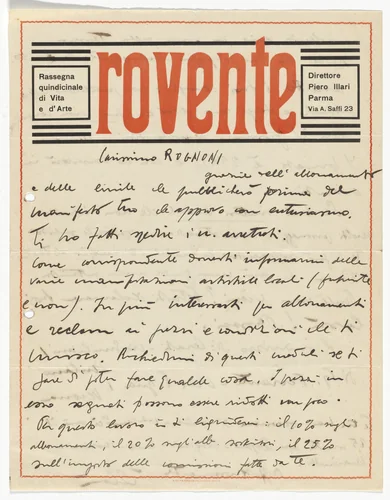 Rassegna
quindicinale
di Vita
e d'Arte
rovente
Direttore
Piero Illari
Parma
Via A. Saffi 23
Carissimo ROGNONI
grazie dell'abbonamento
e delle che pubblicherò prima del
manifesto tuo che approvo con entusiasmo.
Ti ho fatti spedire i n. arretrati.
Come corrispondente dovresti informarmi delle
varie manifestazioni artistiche locali (futuriste
e non). In più interessarti per abbonamenti
e reclam ai prezzi e condizioni che ti
unisco. Richiedimi di questi moduli se ti
pare di poter fare qualche cosa. I prezzi in
esso segnati possono essere ridotti un poco.
Per questo lavoro io ti liquiderei: il 10% sugli
abbonamenti, il 20% sugli altri, il 25%
sull'importo delle fatte da te.